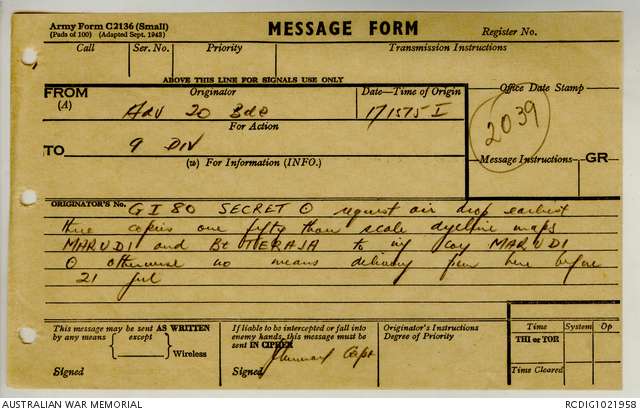 Army Form C2136 (Small)
(Pads of 100) (Adapted Sept. 1943)
MESSAGE FORM
Register No.
Call Ser. No. Priority Transmission Instructions
ABOVE THIS LINE FOR SIGNALS USE ONLY
FROM Originator Date—Time of Origin Office Date Stamp
(A) Adv 20 Bde 171575 I
2039
For Action
TO 9 DIV
(w) For Information (INFO.) Message Instructions GR
ORIGINATOR'S No. G I 80 SECRET ⊙ request air drop earliest
three copies one fifty thou scale dyeline maps
MARUDI and Bt TERAJA to my coy MARUDI
⊙ otherwise no means delivery from here before
21 Jul
This message may be sent AS WRITTEN
by any means except
Wireless
Signed
If liable to be intercepted or fall into
enemy hands, this message must be
sent IN CIPHER
Signed Capt
Originator's Instructions
Degree of Priority
Time System Op
THI or TOR
Time Cleared
AUSTRALIAN WAR MEMORIAL RCDIG1021958